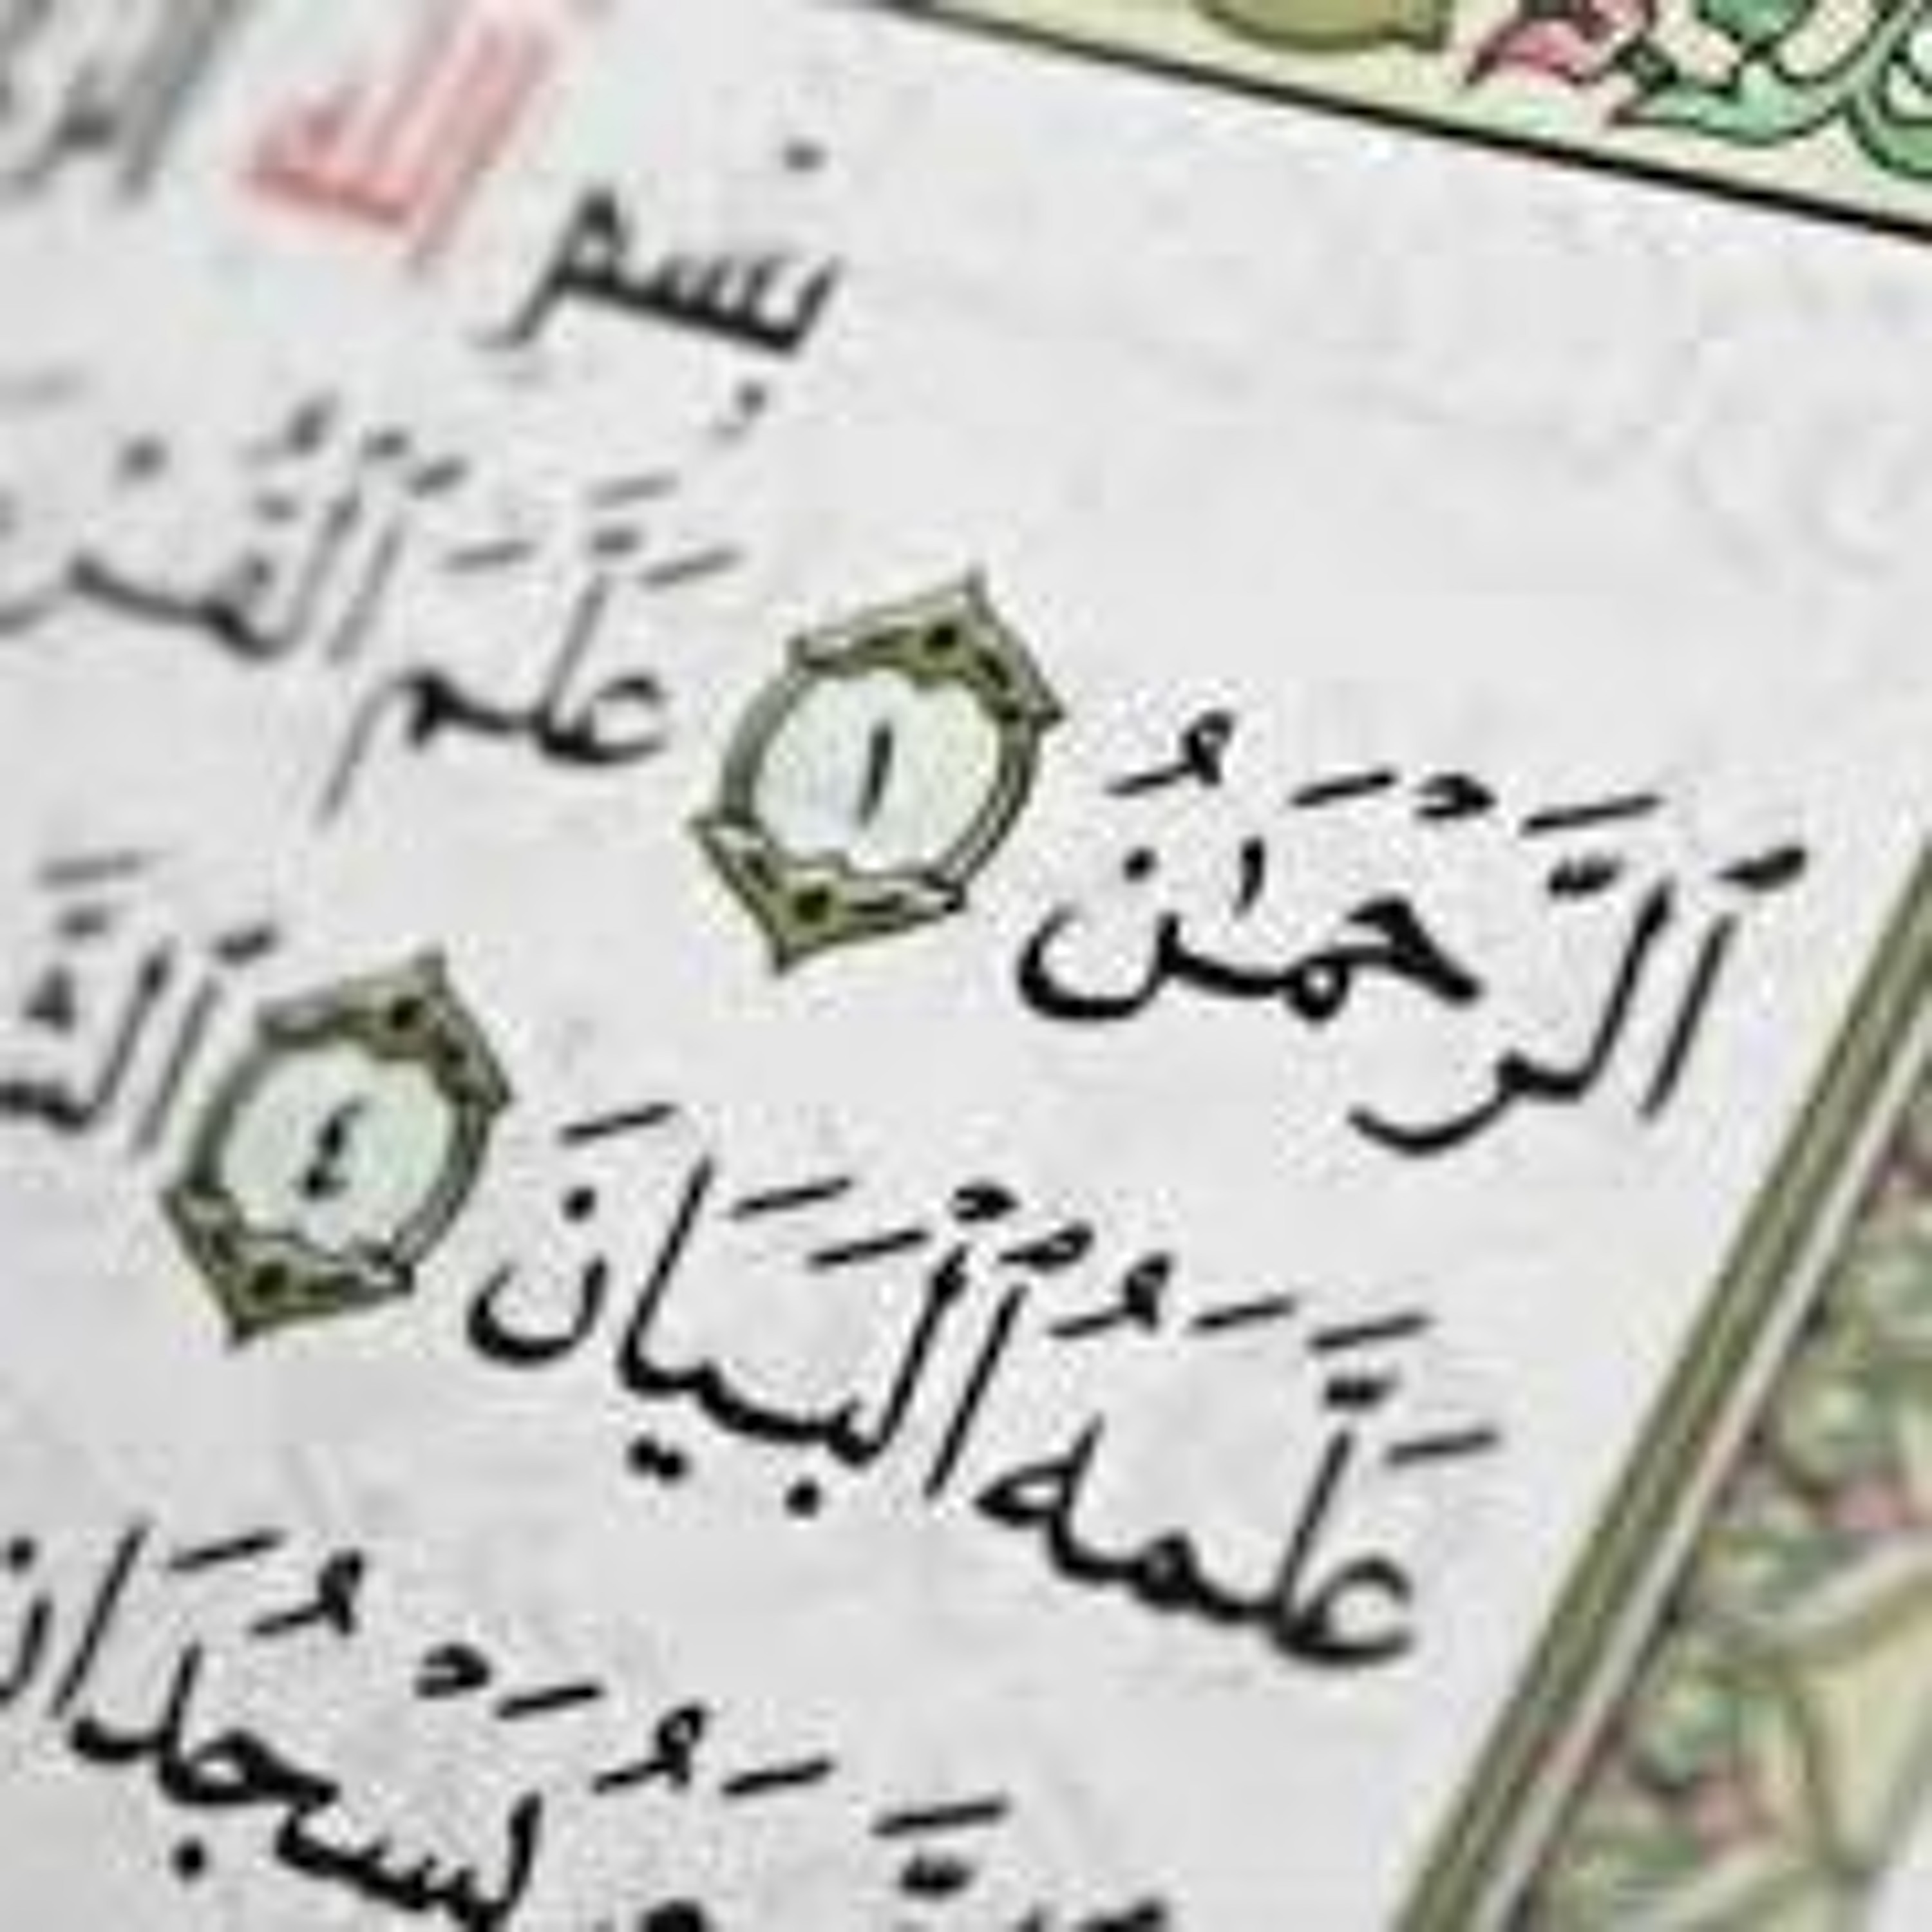 بِسْمِ ٱللَّهِ
ٱلرَّحْمَٰنُ ١ عَلَّمَ ٱلْقُرْ
عَلَّمَهُ ٱلْبَيَانَ ٤ ٱلشَّ
يَسْجُدَانِ